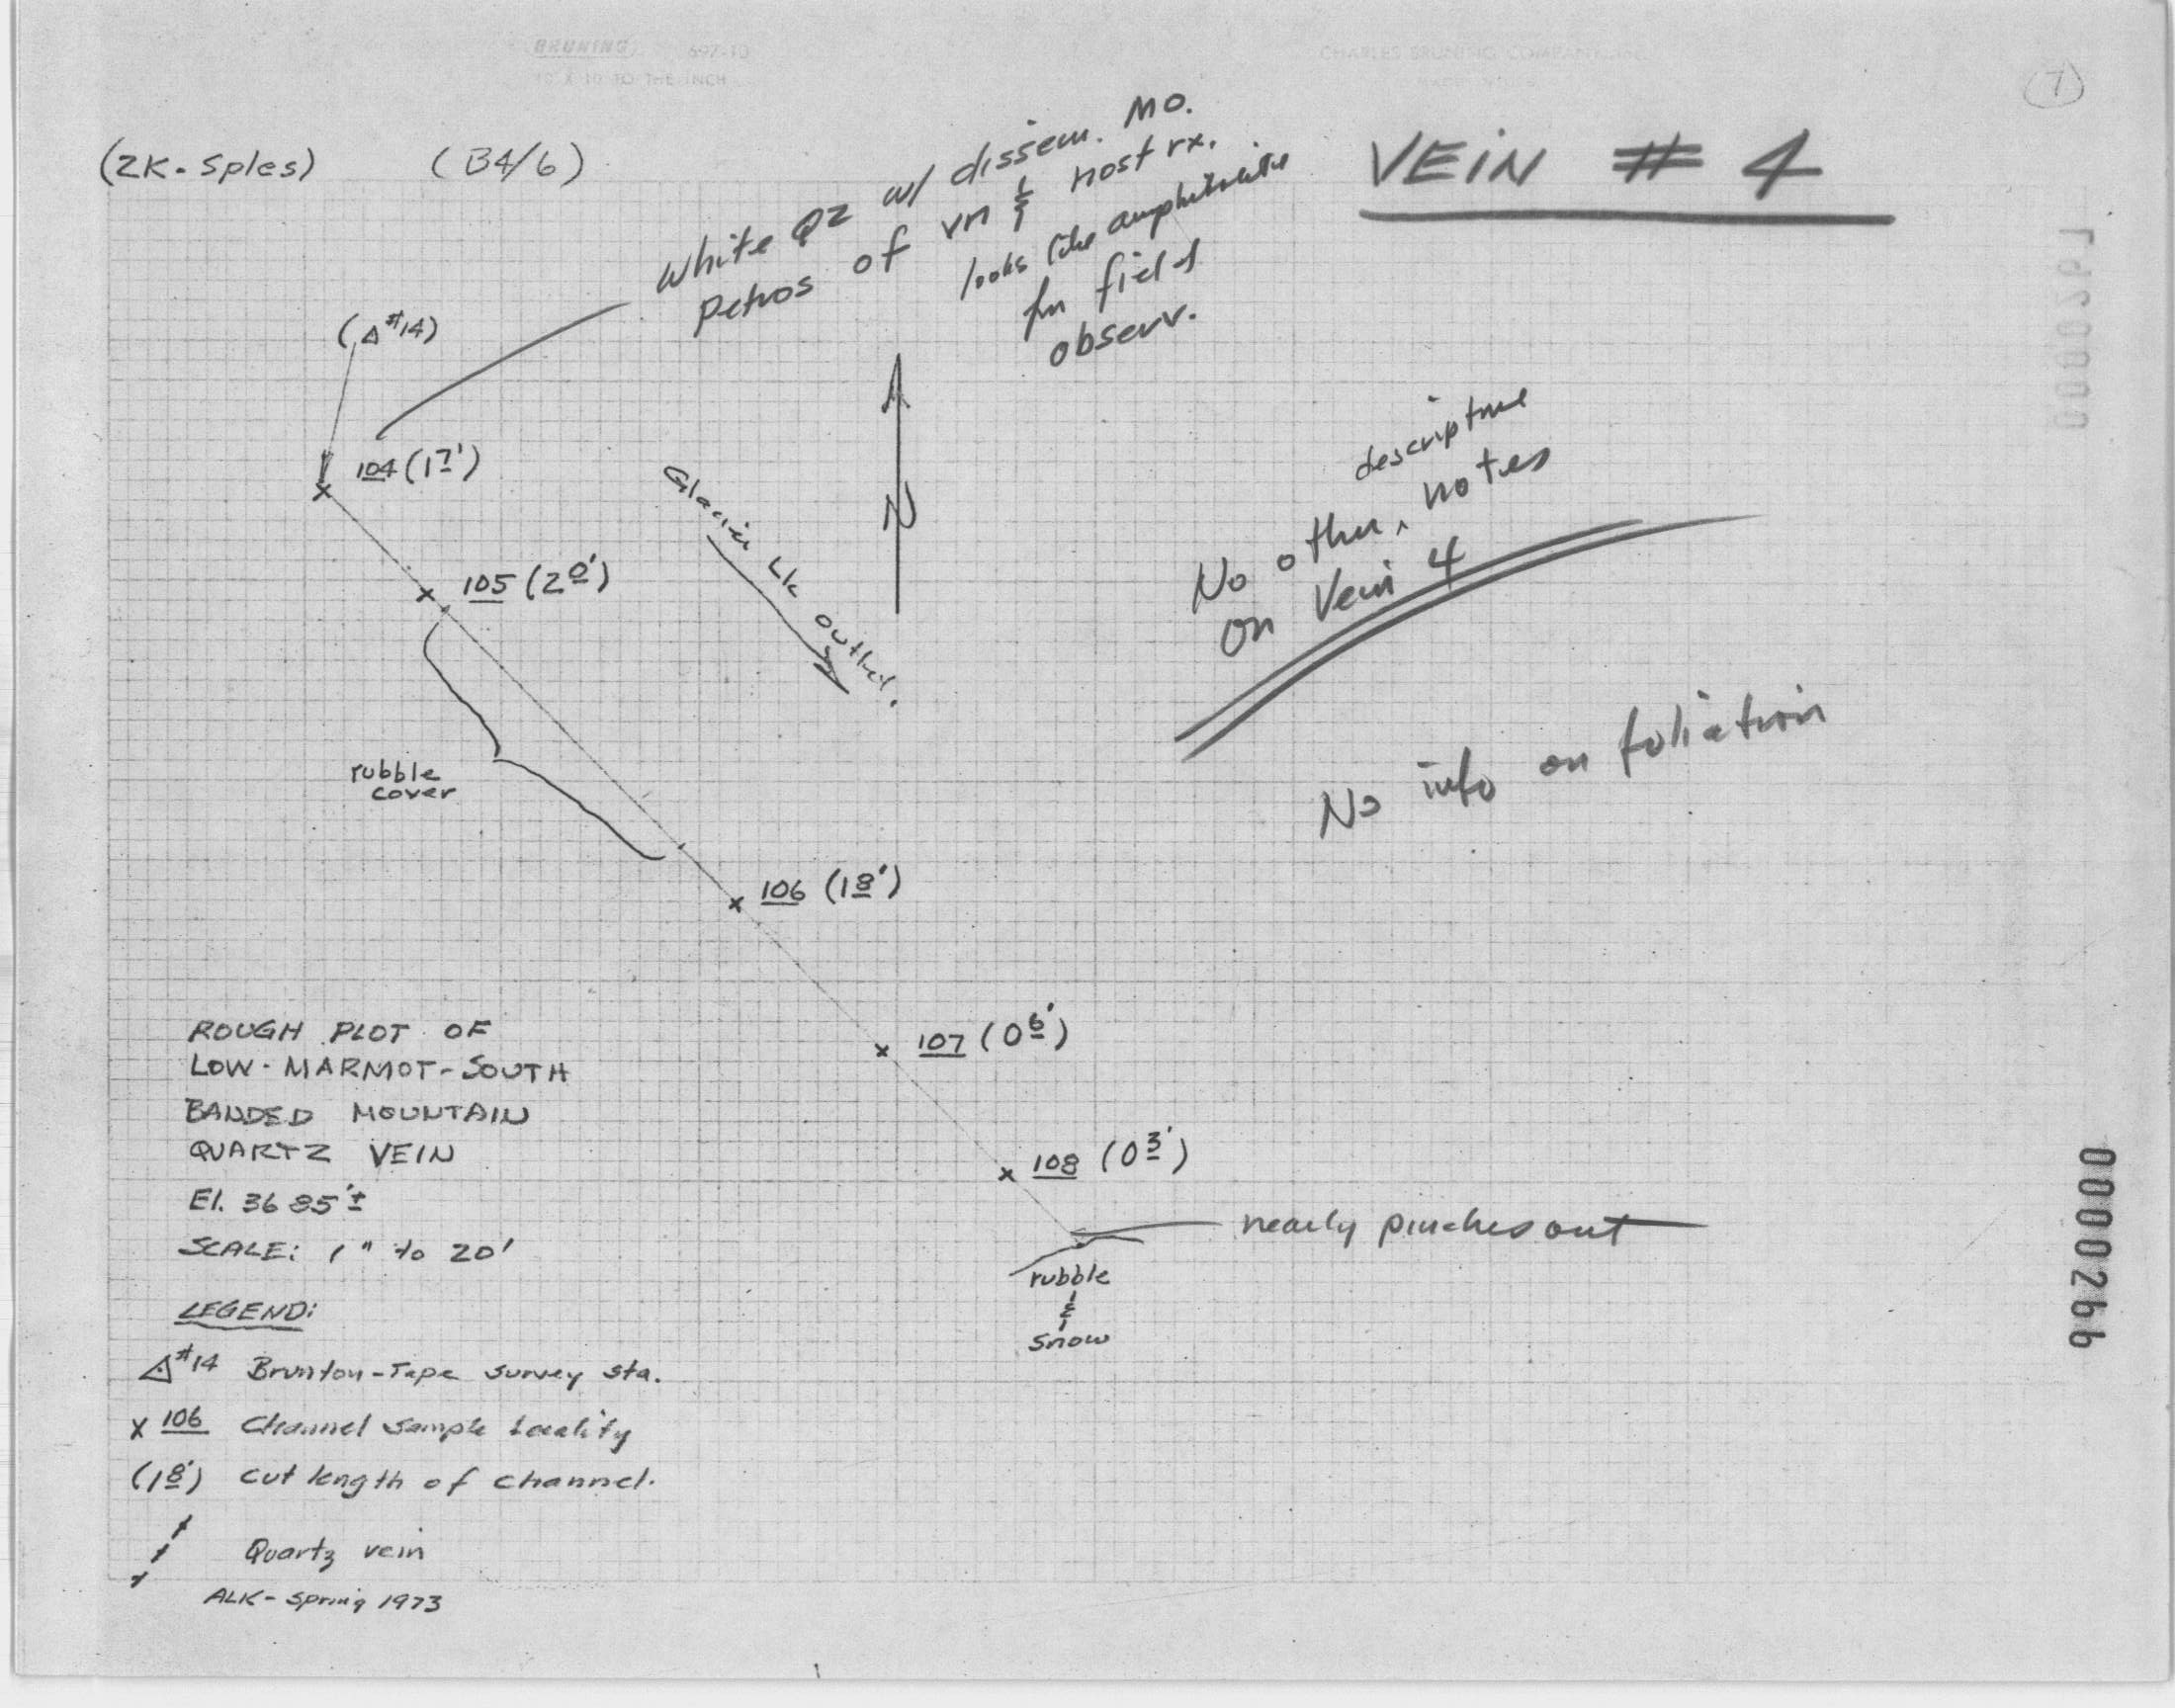 BRUNING 692-10
10 X 10 TO THE INCH
CHARLES BRUNING COMPANY, INC.
(7)
(ZK-Sples) (B4/6)
VEIN # 4
White QZ w/ dissem. MO.
Petros of vn & host rx.
looks like amphibolite
fm field
observ.
(△#14)
104 (1 7')
N
Glacier Lk outlet.
105 (2 0')
descriptive
No other ^ notes
on Vein 4
No info on foliation
rubble
cover
106 (1 8')
107 (0 6')
108 (0 3')
nearly pinches out
rubble
&
snow
ROUGH PLOT OF
LOW-MARMOT-SOUTH
BANDED MOUNTAIN
QUARTZ VEIN
El. 3685'±
SCALE: 1" to 20'
LEGEND:
△#14 Brunton-Tape survey sta.
x 106 Channel sample locality
(1 8') cut length of channel.
Quartz vein
ALK-Spring 1973
0000266